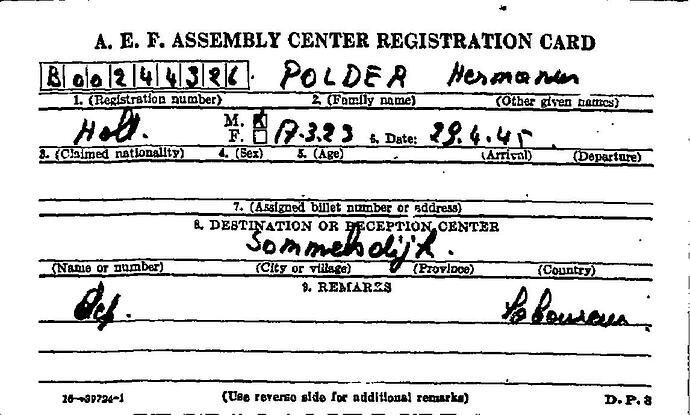 A. E. F. ASSEMBLY CENTER REGISTRATION CARD
B00244326. POLDER Hermanus
1. (Registration number) 2. (Family name) (Other given names)
Holl. M. F. 17.3.23 6. Date: 29.4.45
3. (Claimed nationality) 4. (Sex) 5. (Age) (Arrival) (Departure)
7. (Assigned billet number or address)
8. DESTINATION OR RECEPTION CENTER
Sommelsdijk.
(Name or number) (City or village) (Province) (Country)
9. REMARKS
(Use reverse side for additional remarks) D.P. 3